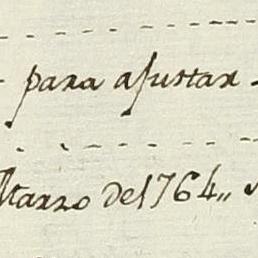 para ajustar
Marzo de 1764,,